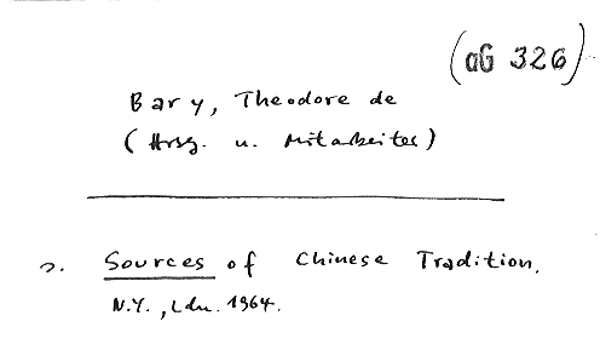 (aG 326)
Bary, Theodore de
(Hrsg. u. Mitarbeiter)
Sources of Chinese Tradition.
N.Y., Ldn. 1964.